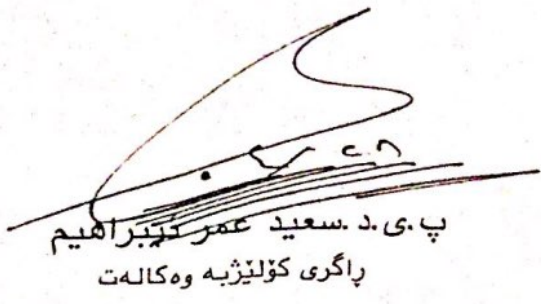 پ.ی.د.سعید عمر ئیبراهیم
ڕاگری کۆلێژبە وەکالەت